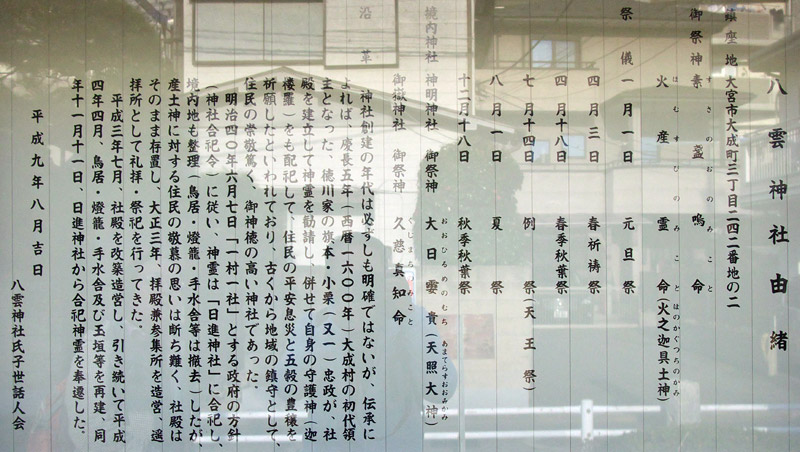 八雲神社由緒
鎮座地 大宮市大成町三丁目二四二番地の二
御祭神 素盞嗚命
すさのおのみこと
火産霊命(火之迦具土神)
ほむすびのみこと ほのかぐつちのかみ
祭儀 一月一日 元旦祭
四月三日 春祈祷祭
四月十八日 春季秋葉祭
七月十四日 例祭(天王祭)
八月一日 夏祭
十二月十八日 秋季秋葉祭
境内神社 神明神社 御祭神 大日孁貴(天照大神)
おおひるめのむち あまてらすおおみかみ
御嶽神社 御祭神 久慈真知命
くじまちのみこと
沿革
神社創建の年代は必ずしも明確ではないが、伝承に
よれば、慶長五年(西暦一六〇〇年)大成村の初代領
主となった、徳川家の旗本・小栗(又一)忠政が、社
殿を建立して神霊を勧請し、併せて自身の守護神(迦
楼羅)をも配祀して、住民の平安息災と五穀の豊穣を
祈願したといわれており、古くから地域の鎮守として、
住民の崇敬篤く、御神徳の高い神社であった。
明治四〇年六月七日「一村一社」とする政府の方針
(神社合祀令)に従い、神霊は「日進神社」に合祀し、
境内地も整理(鳥居・燈籠・手水舎等は撤去)したが、
産土神に対する住民の敬慕の思いは断ち難く、社殿は
そのまま存置し、大正三年、拝殿兼参集所を造営、遥
拝所として礼拝・祭祀を行ってきた。
平成三年七月、社殿を改築造営し、引き続いて平成
四年四月、鳥居・燈籠・手水舎及び玉垣等を再建、同
年十一月十一日、日進神社から合祀神霊を奉遷した。
平成九年八月吉日
八雲神社氏子世話人会